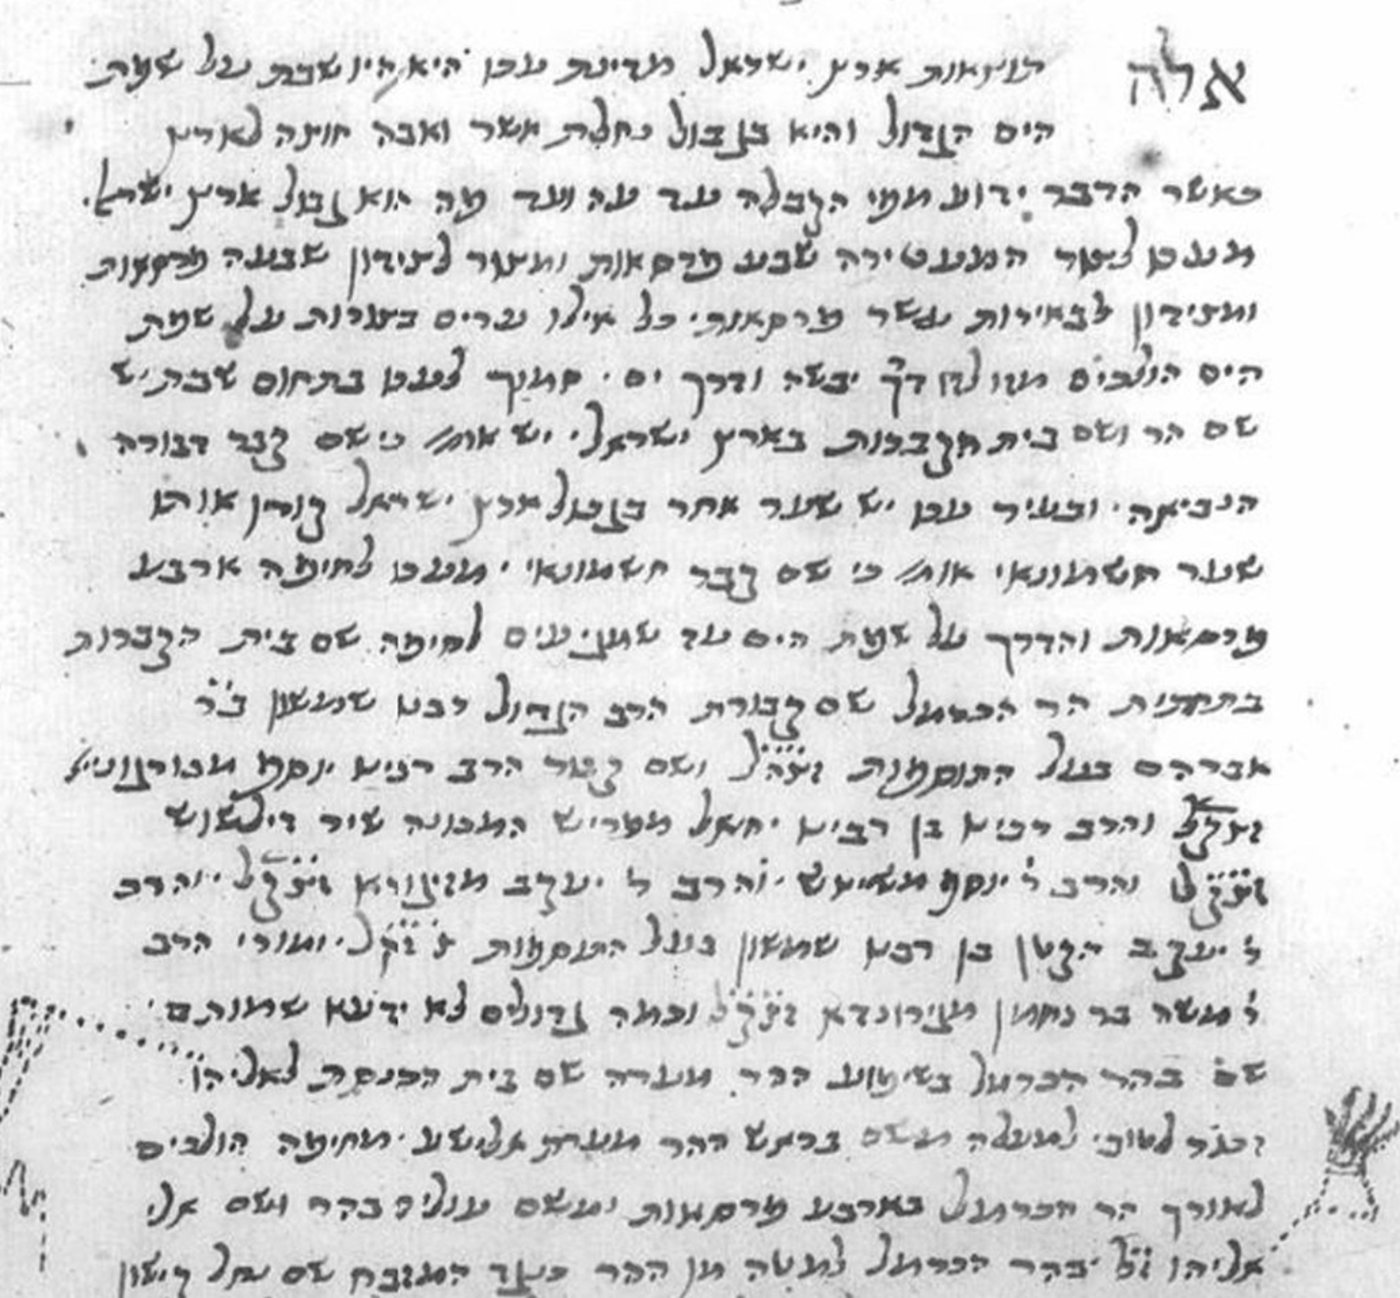 אלה תוצאות ארץ ישראל מדינת עכו היא היושבת על שפת
הים הגדול והיא בגבול נחלת אשר ואבה חוצה לארץ
כאשר הדבר ידוע מפי הקבלה עד עה ועד מה הוא גבול ארץ ישראל.
מעכו לצור המעטירה שבע פרסאות ומצור לצידון שבעה פרסאות
ומצידון לבאירות עשר פרסאות כל אילו ערים בצורות על שפת
הים הולכים מזו לזו דרך יבשה ודרך ים סמוך לעכו בתחום שבת יש
שם הר ושם בית הקברות בארץ ישראל יש אומ' כי שם קבר דבורה
הנביאה ובעיר עכו יש שער אחד בגבול ארץ ישראל קורין אותו
שער חשמונאי אומ' כי שם קבר חשמונאי מעכו לחיפה ארבע
פרסאות והדרך על שפת הים עד שמגיעים לחיפה שם בית הקברות
בתחתית הר הכרמל שם קבורת הרב הגדול רבנא שמשון ב"ר
אברהם בעל התוספות זצ"ל ושם קבור הרב רבינא יוסף מבורגונייא
זצק"ל והרב רבינא בן רבינא יחיאל מפריש המכונה שיר דילשוש
זצק"ל והרב ר' יוסף והרב ר' יעקב זצק"ל והרב
ר' יעקב הקטן בן רבנא שמשון בעל התוספות זצק"ל ומורי הרב
ר' משה בר נחמן מגירונדא זצק"ל וכמה גדולים לא ידענא שמותם
שם בהר הכרמל בשיפוע ההר מערה שם בית הכנסת לאליהו
זכור לטוב למעלה משם בראש ההר מערת אלישע מחיפה הולכים
לאורך הר הכרמל בארבע פרסאות ומשם עולים בהר ושם
אליהו ז"ל בהר הכרמל למטה מן ההר כנגד המזבח שם נחל קישון